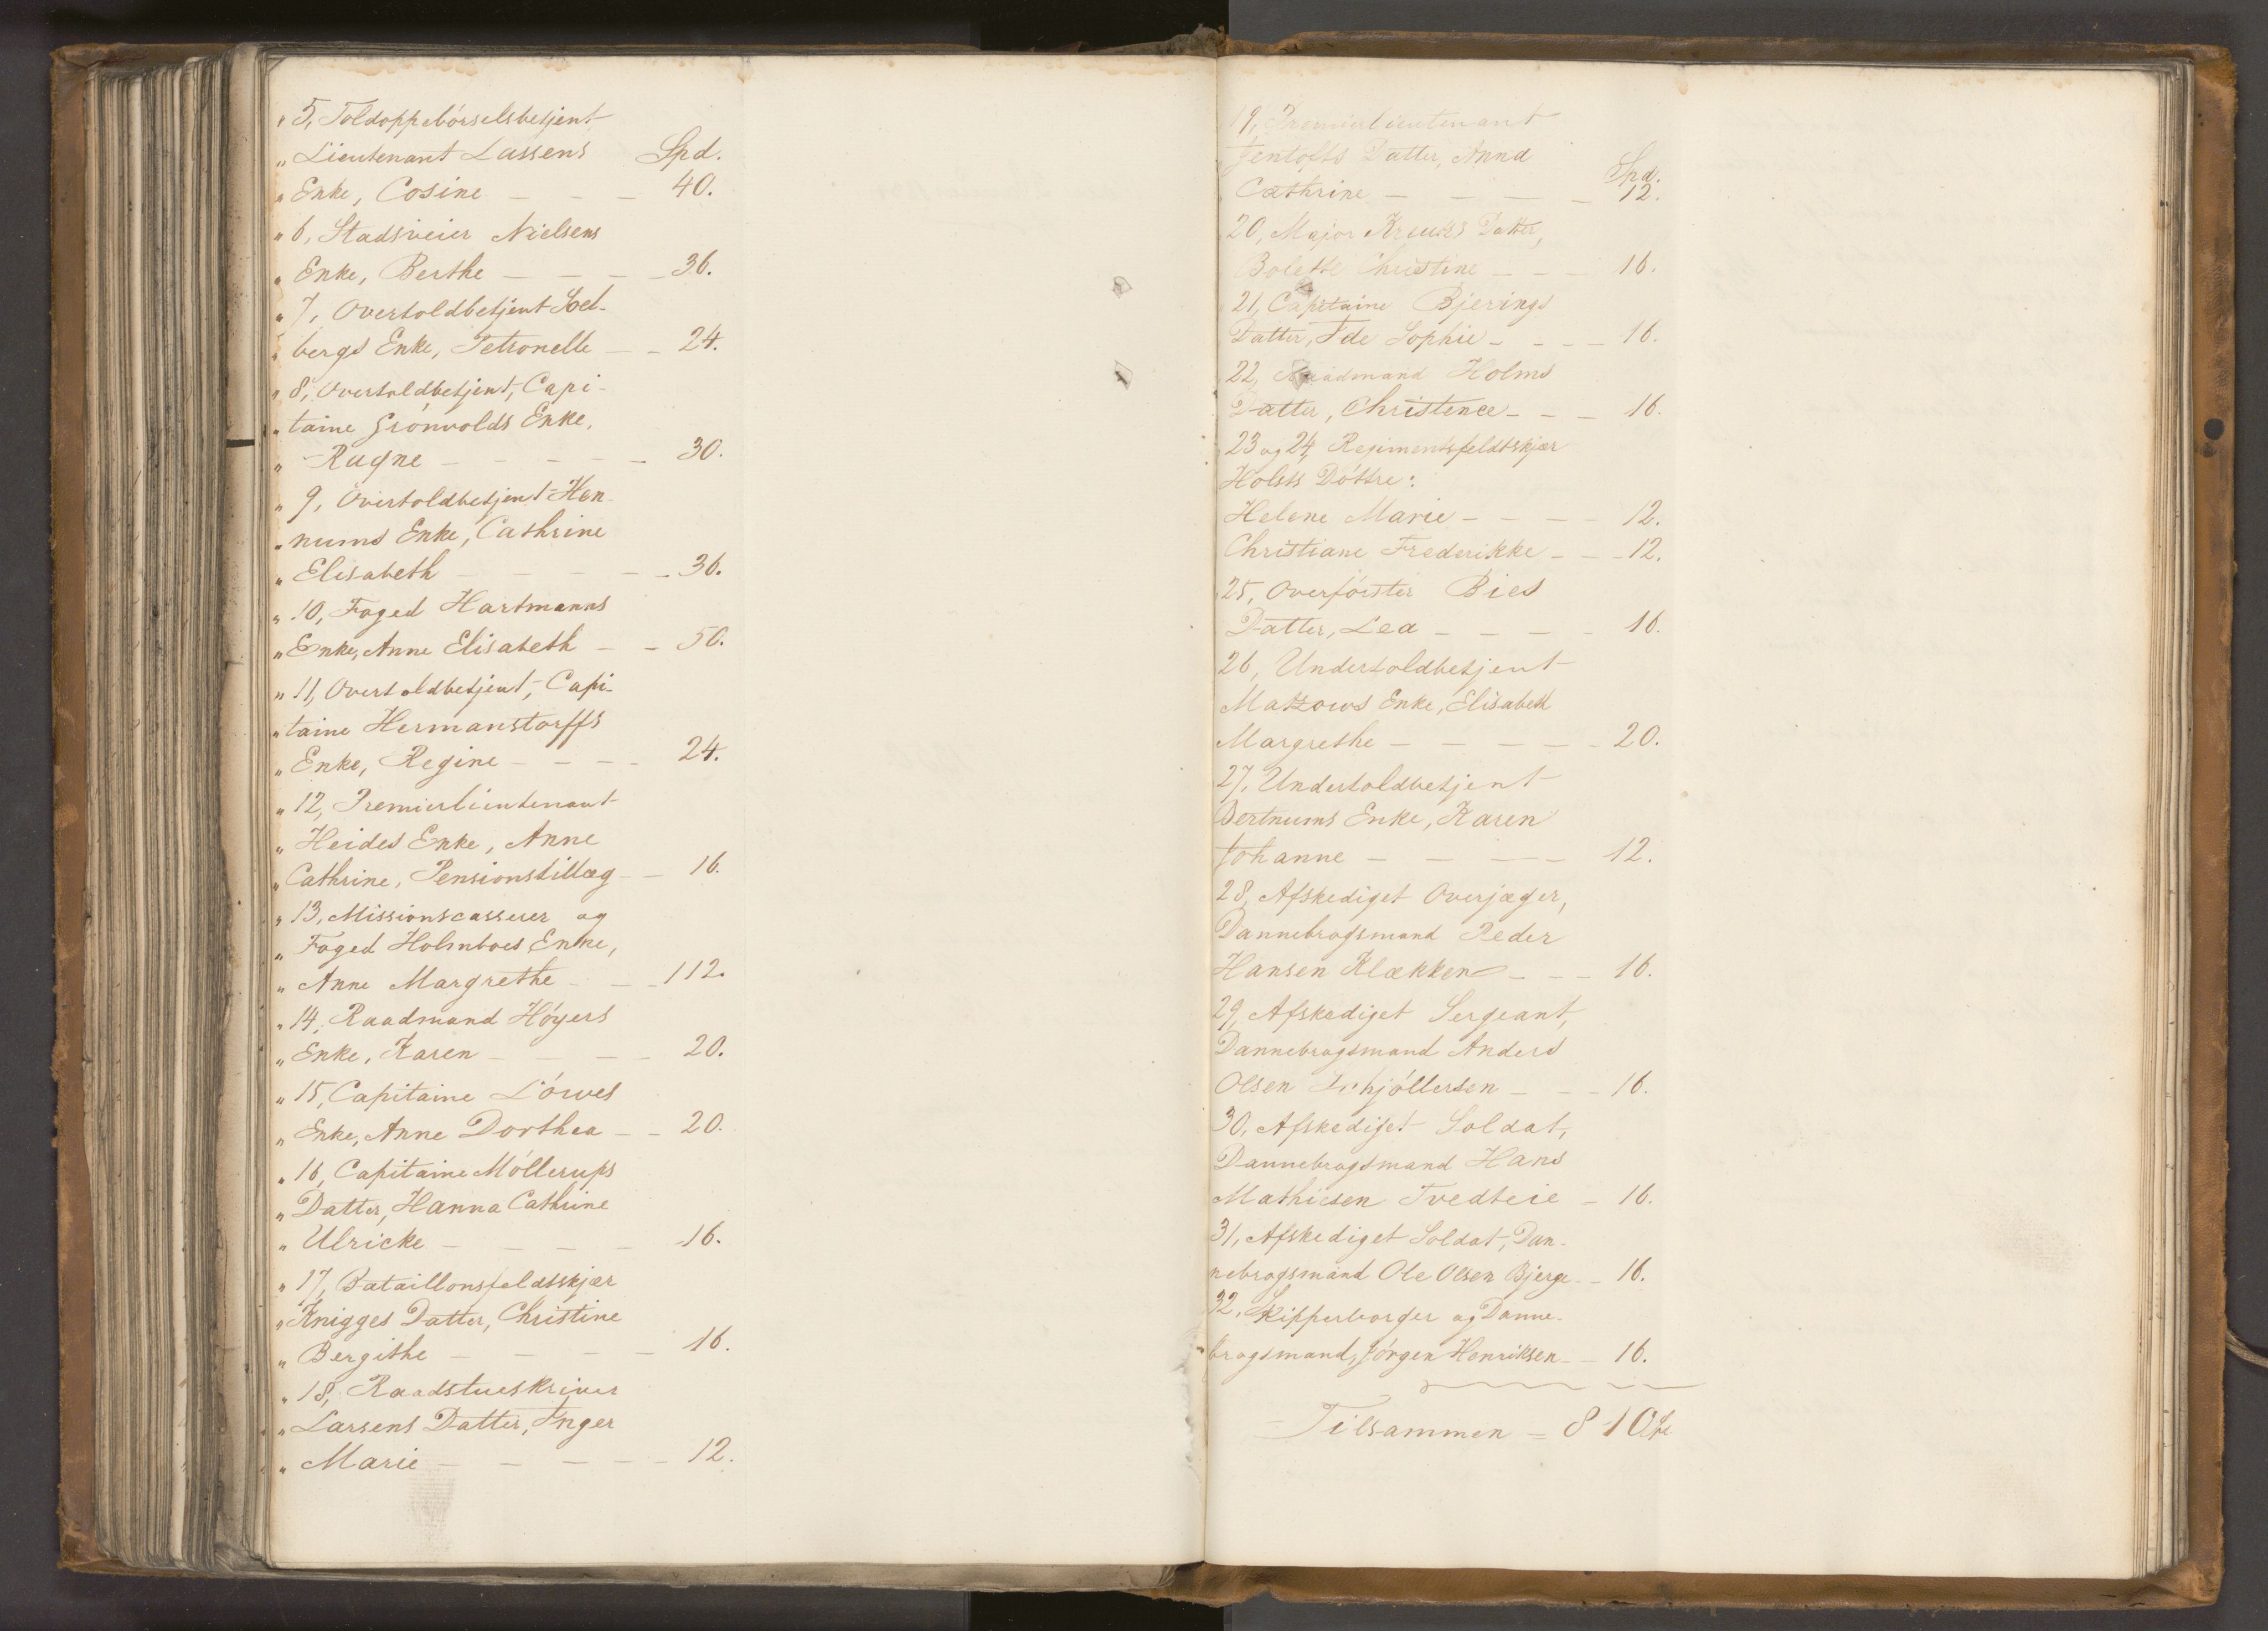 " 5, Toldoppebörselsbetjent
" Lieutenant Lassens Spd.
" Enke, Cosine — — — 40.
" 6, Stadsveier Nielsens
" Enke, Berthe — — — — 36.
" 7, Overtoldbetjent Soel-
" bergs Enke, Petronelle — — 24.
" 8, Overtoldbetjent, Capi-
" taine Grönvolds Enke,
" Ragne — — — — — 30.
" 9, Overtoldbetjent Hen-
" nums Enke, Cathrine
" Elisabeth — — — — — 36.
" 10, Foged Hartmanns
" Enke, Anne Elisabeth — — 50.
" 11, Overtoldbetjent, Capi-
" taine Hermanstorffs
" Enke, Regine — — — — 24.
" 12, Premierlieutenant
" Heides Enke, Anne
" Cathrine, Pensionstillæg — — 16.
" 13, Missionscasserer og
" Foged Holmboes Enke,
" Anne Margrethe — — — 112.
" 14, Raadmand Höyers
" Enke, Karen — — — — 20.
" 15, Capitaine Löwes
" Enke, Anne Dorthea — — 20.
" 16, Capitaine Möllerups
" Datter, Hanna Cathrine
" Ulricke — — — — — 16.
" 17, Bataillonsfeldtskjær
" Knigges Datter, Christine
" Bergithe — — — — — 16.
" 18, Raadstueskriver
" Larsens Datter, Inger
" Marie — — — — — 12.
19, Premierlieutenant
Jentofts Datter, Anna Spd.
Cathrine — — — — — 12.
20, Major Kreutts Datter,
Bolette Christine — — — 16.
21, Capitaine Bjerings
Datter, Ide Sophie — — — — 16.
22, Raadmand Holms
Datter, Christence — — — 16.
23 og 24, Regimentsfeldtskjær
Holsts Döttre:
Helene Marie — — — — 12.
Christiane Frederikke — — — 12.
25, Overförster Bies
Datter, Lea — — — — 16.
26, Undertoldbetjent
Matzows Enke, Elisabeth
Margrethe — — — — — 20.
27, Undertoldbetjent
Bertnums Enke, Karen
Johanne — — — — 12.
28, Afskediget Overjæger,
Dannebrogsmand Peder
Hansen Klækken — — — 16.
29, Afskediget Sergeant,
Dannebrogsmand Anders
Olsen — — — 16.
30, Afskediget Soldat,
Dannebrogsmand Hans
Mathiesen Tvedteie — 16.
31, Afskediget Soldat, Dan-
nebrogsmand Ole Olsen Bjerge — — 16.
32, Skipperborger og Danne-
brogsmand, Jörgen Henriksen — — 16.
Tilsammen = 810 Sp